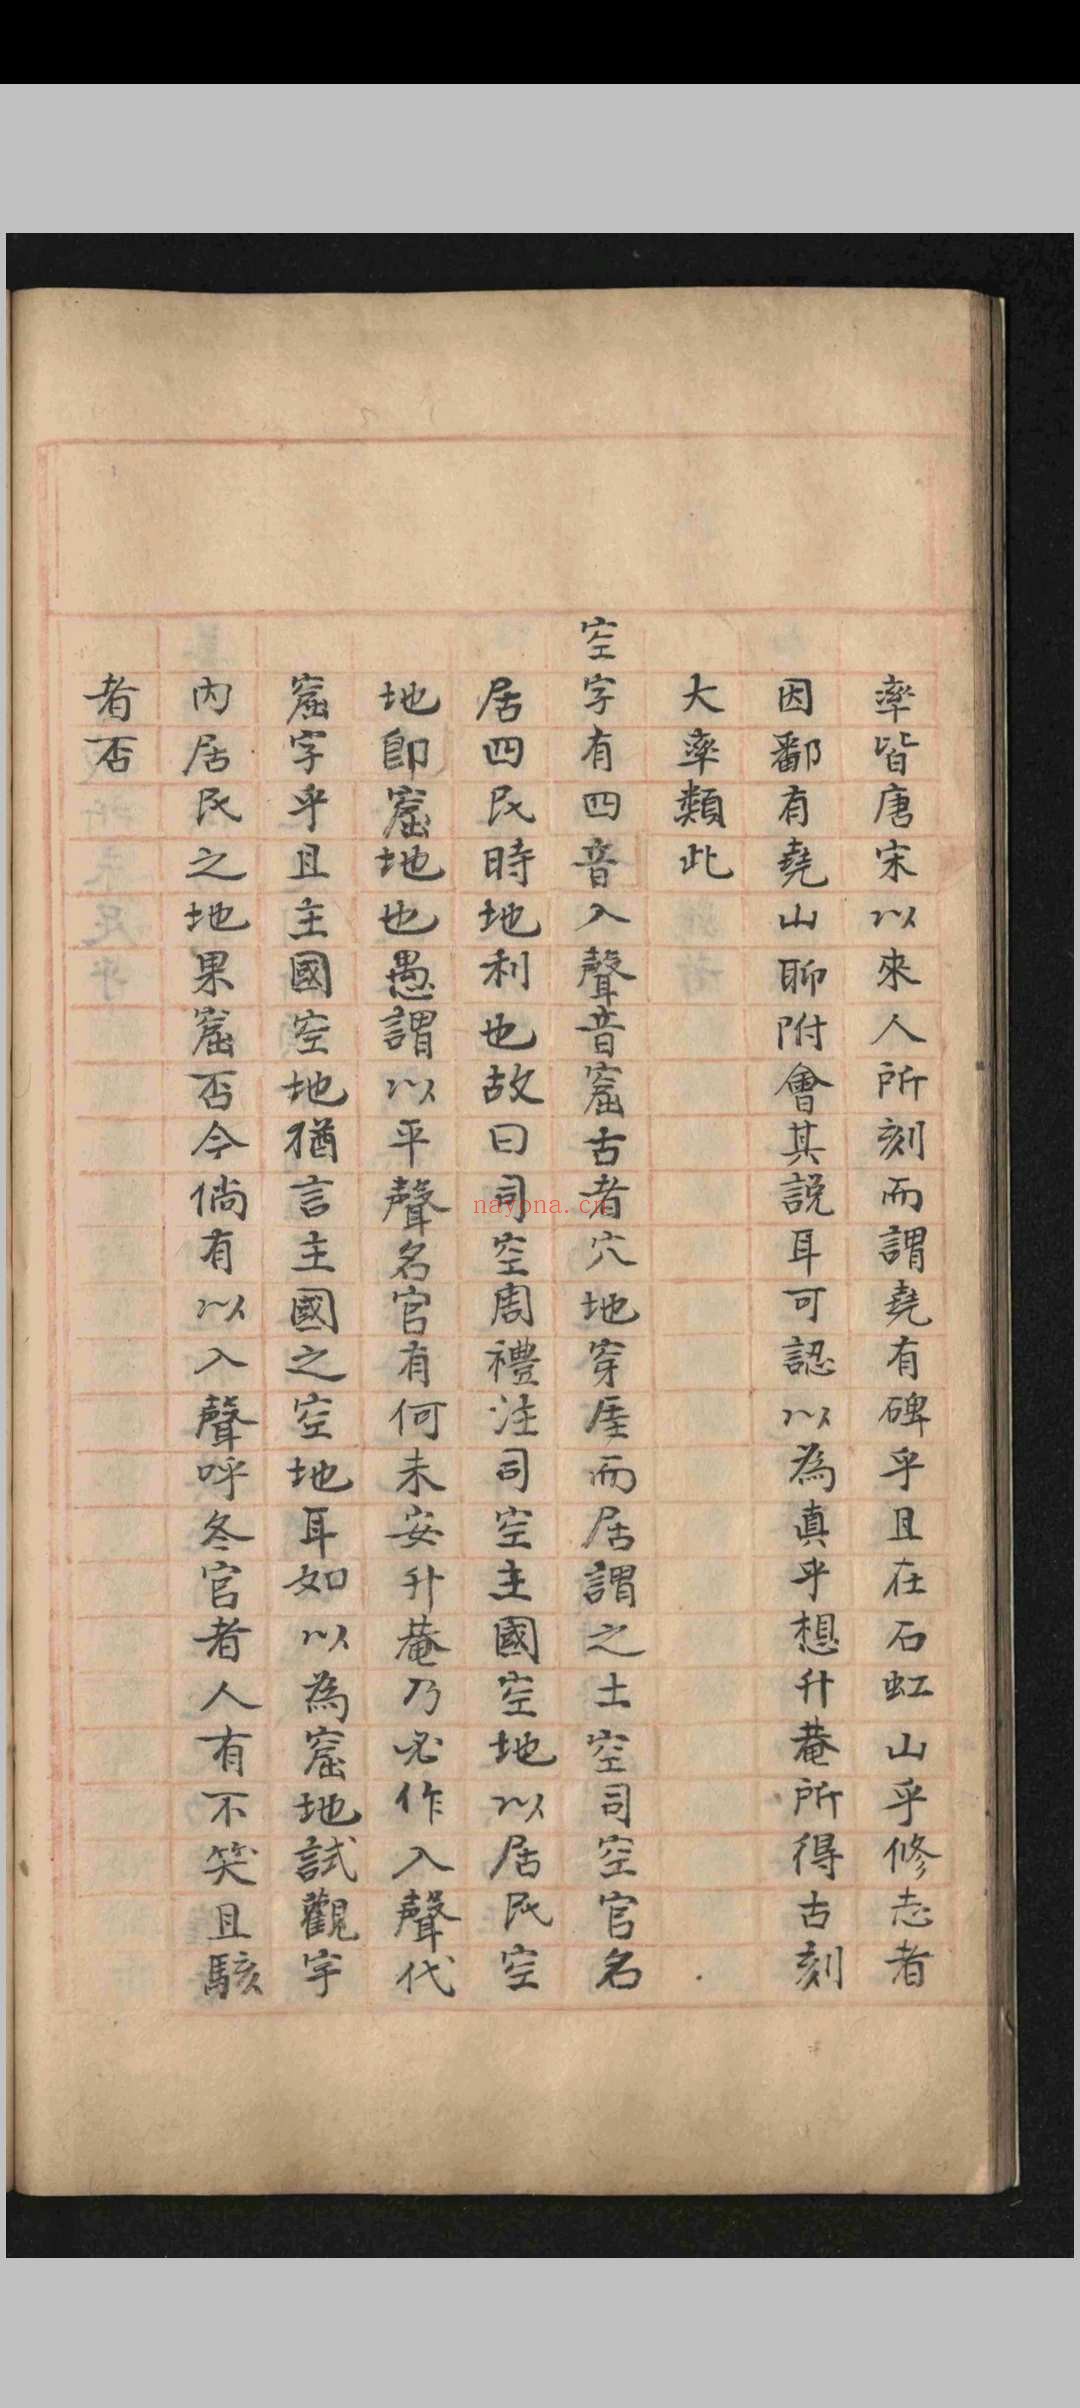 率皆唐宋以來人所刻而謂堯有碑乎且在石虹山乎修志者
因鄱有堯山聊附會其説耳可認以為真乎想升菴所得古刻
大率類此
空字有四音入聲音窟古者穴地穿厓而居謂之土空司空官名
居四民時地利也故曰司空周禮注司空主國空地以居民空
地卽窟地也愚謂以平聲名官有何未安升菴乃必作入聲代
窟字乎且主國空地猶言主國之空地耳如以為窟地試觀宇
內居民之地果窟否今倘有以入聲呼冬官者人有不笑且駭
者否
nayona.cn